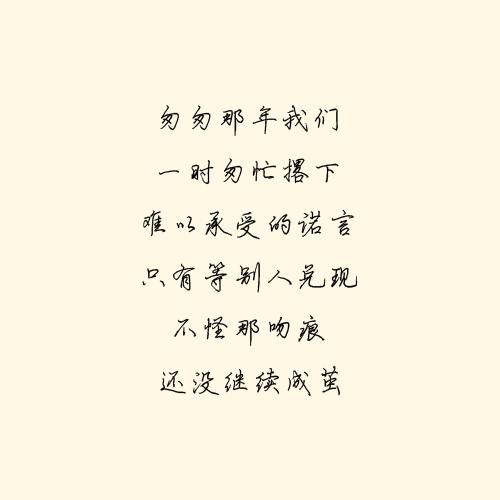 匆匆那年我们
一时匆忙撂下
难以承受的诺言
只有等别人兑现
不怪那吻痕
还没继续成茧